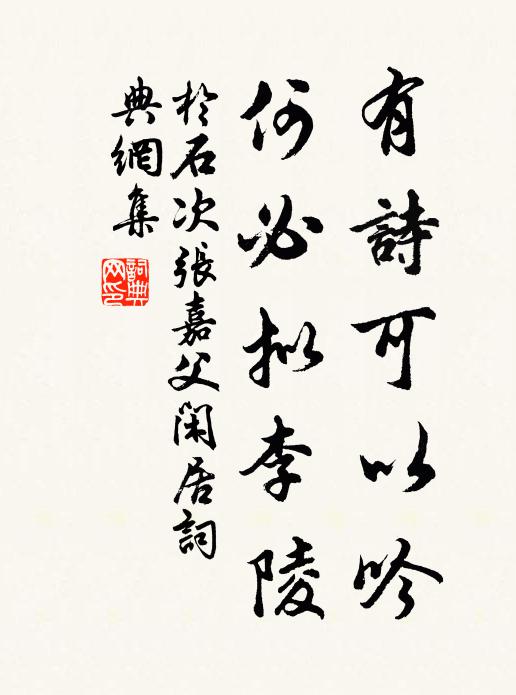 有詩可以吟
何必拟李陵
於石次張嘉父闲居詞
典網集
詞典
网印